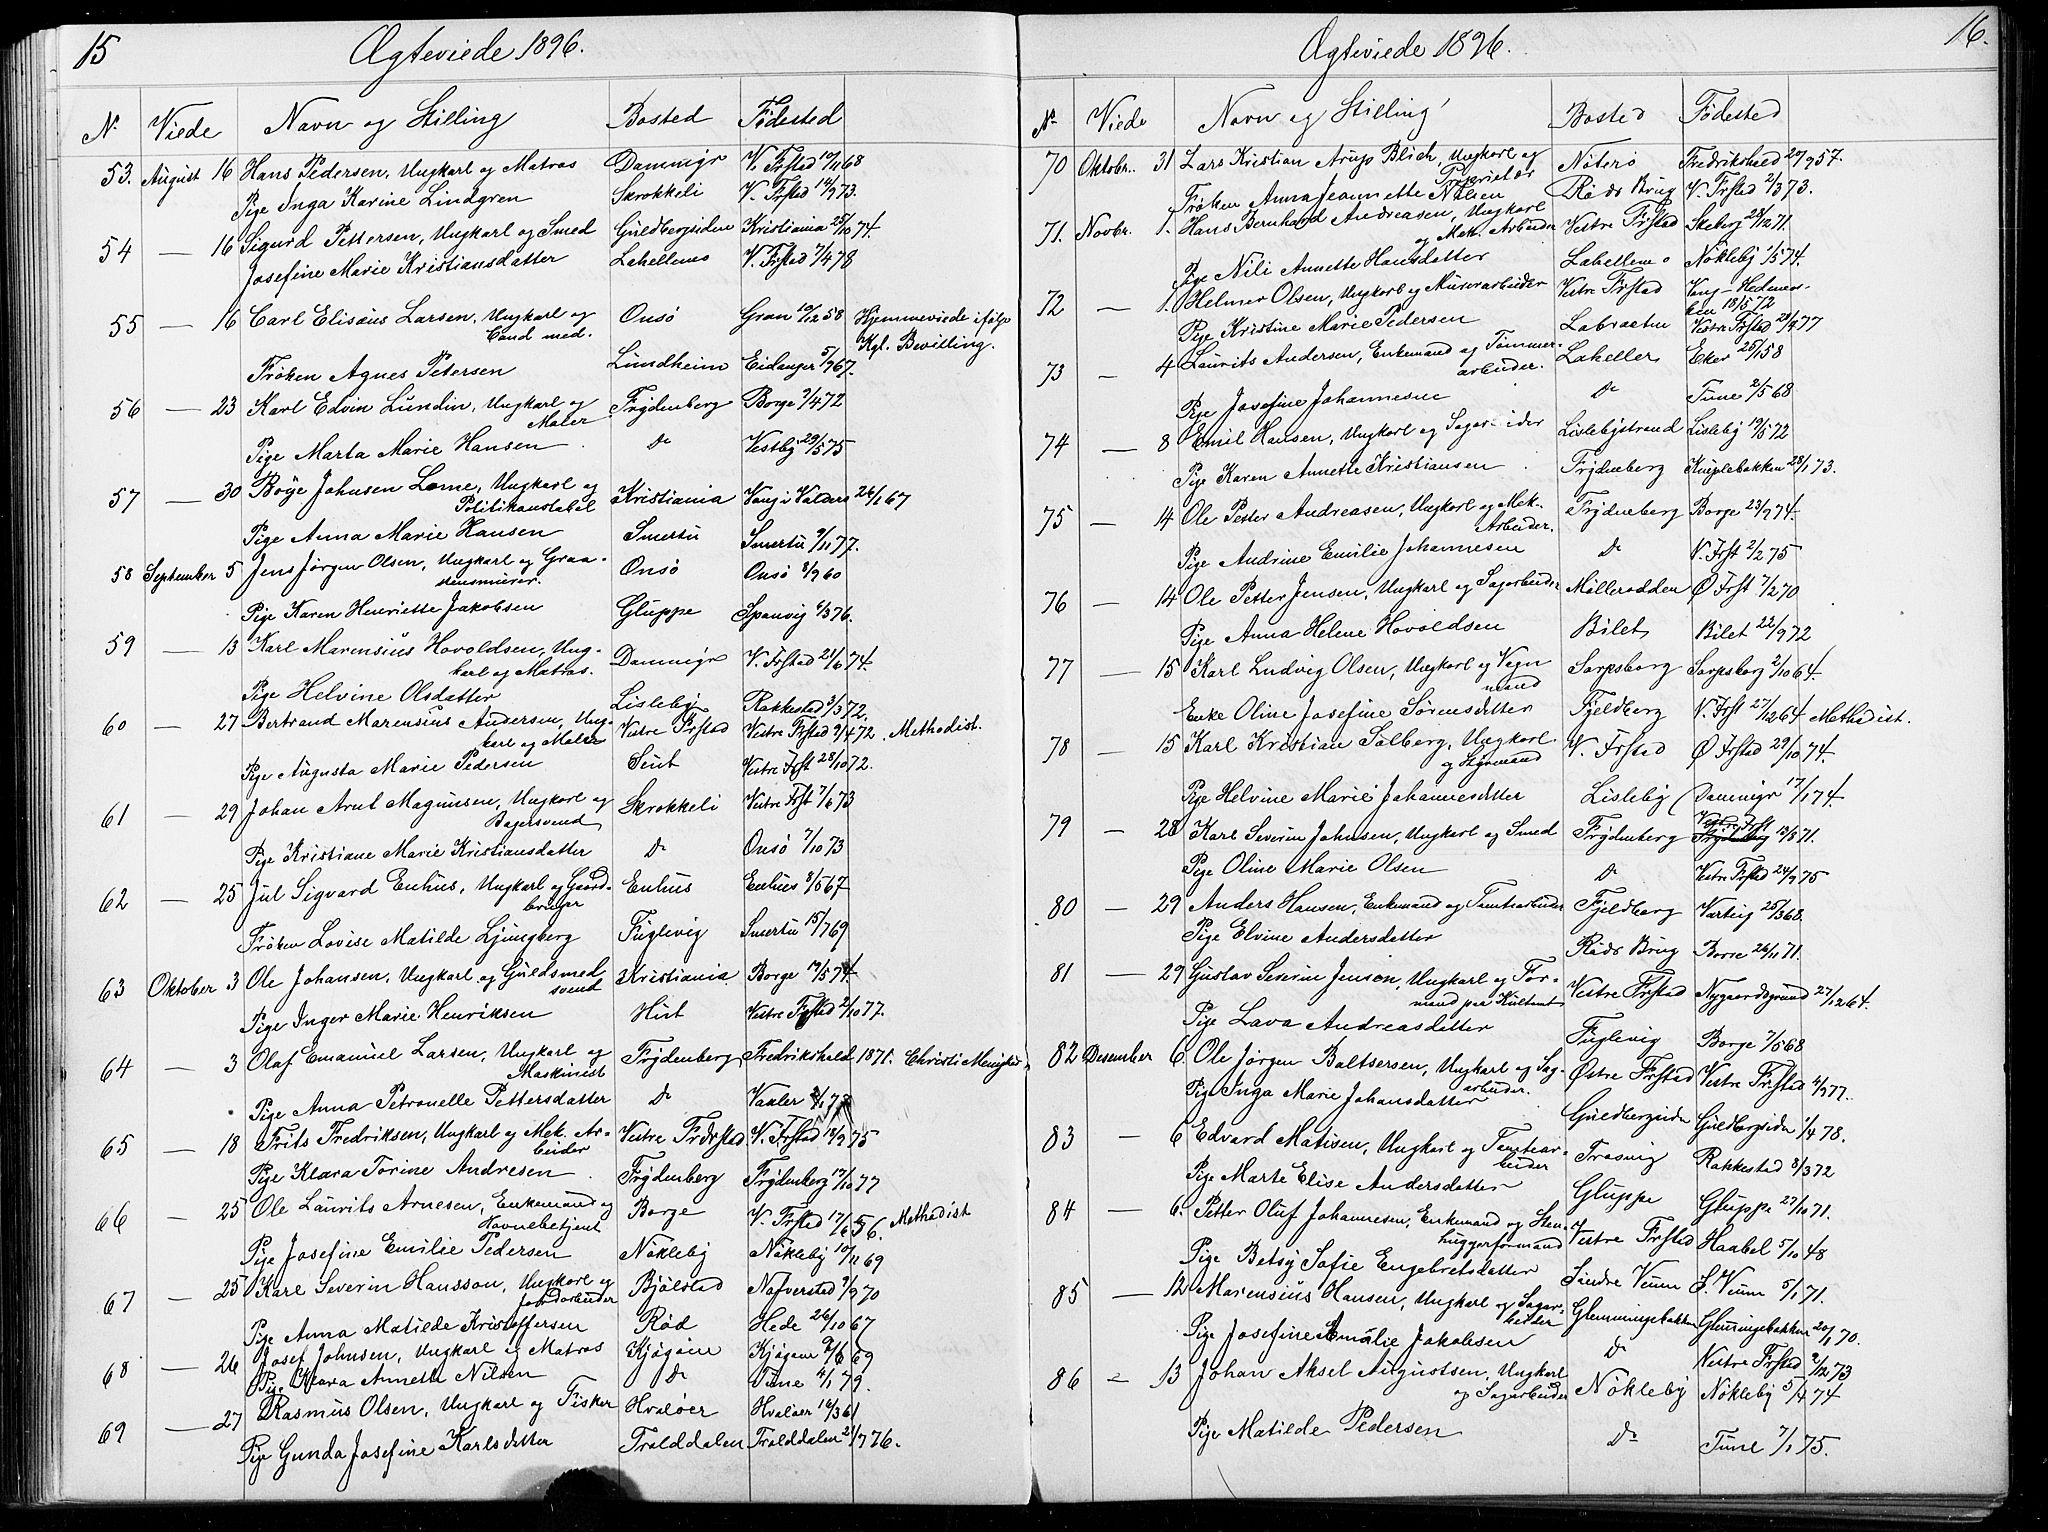 15 Ægteviede 1896.
No Viede Navn og Stilling Bosted Födested
53. August 16 Hans Pedersen, Ungkarl og Matros Dammyr V. Frstad 10/11 68
Pige Inga Karine Lindgren Skrokkeli V. Frstad 14/9 73.
54 — 16 Sigurd Pettersen, Ungkarl og Smed Guldbergsiden Kristiania 25/10 74.
Josefine Marie Kristiansdatter Lahellemo V. Frstad 7/4 78
55 — 16 Carl Elisæus Larsen, Ungkarl og Onsö Gran 10/12 58 Hjemmeviede ifölge
Cand med. Kgl. Bevilling.
Fröken Agnes Petersen Lundheim Eidanger 5/9 67.
56 — 23 Karl Edvin Lundin, Ungkarl og Frydenberg Borge 7/4 72
Maler
Pige Marta Marie Hansen Do Vestby 29/5 75
57 — 30 Böye Johnsen Lome, Ungkarl og Kristiania Vang i Valders 26/1 67
Politikonstabel
Pige Anna Marie Hansen Smertu Smertu 9/11 77.
58 September 5 Jens Jörgen Olsen, Ungkarl og Graa- Onsö Onsö 8/9 60
stensmurer.
Pige Karen Henriette Jakobsen Gluppe Spanvig 6/3 76.
59 — 13 Karl Marensius Hovoldsen, Ung- Dammyr V. Frstad 21/6 74.
karl og Matros.
Pige Helvine Olsdatter Lisleby Rakkestad 3/3 72.
60 — 27 Bertrand Marensius Andersen, Ung- Vestre Frstad Vestre Frstad 9/4 72. Methodist.
karl og Maler
Pige Augusta Marie Pedersen Seut Vestre Frst 28/10 72.
61 — 29 Johan Arnt Magnusen, Ungkarl og Skrokkeli Vestre Frst 7/6 73
Bagersvend
Pige Kristiane Marie Kristiansdatter Do Onsö 7/10 73
62 — 25 Jul Sigvard Enhus, Ungkarl og Gaard- Enhus Enhus 8/5 67
bruger
Fröken Lovise Matilde Ljungberg Fuglevig Smertu 15/7 69
63 Oktober 3 Ole Johansen, Ungkarl og Guldsmed Kristiania Borge 19/5 74
svend
Pige Inger Marie Henriksen Hut Vestre Frstad 2/10 77.
64 — 3 Olaf Emanuel Larsen, Ungkarl og Frydenberg Fredrikshald 1871. Christi Menighed
Maskinist
Pige Anna Petronelle Pettersdatter Do Vaaler
65 — 18 Frits Fredriksen, Ungkarl og Mek. Ar- Vestre Frdrstad V. Frstad 12/9 75
beider
Pige Klara Torine Andresen Frydenberg Frydenberg 17/10 77
66 — 25 Ole Laurits Arnesen, Enkemand og Borge V. Frstad 17/6 56. Methodist
Havnebetjent
Pige Josefine Emilie Pedersen Nökleby Nökleby 10/11 69
67 — 25 Karl Severin Hansson, Ungkarl og Bjölstad Nafverstad 9/9 70
Jordarbeider
Pige Anna Matilde Kristoffersen Röd Hede 26/10 67
68 — 26 Josef Johnsen, Ungkarl og Matros Kjögöen Kjögöen 9/6 69
Pige Klara Annette Nilsen Do Tune 4/1 79.
69 — 27 Rasmus Olsen, Ungkarl og Fisker Hvalöer Hvaloer 16/3 61
Pige Gunda Josefine Karlsdatter Tralddalen Tralddalen 2/9 76.
Ægteviede 1896. 16.
No Viede Navn og Stilling Bosted Födested
70 Oktobr. 31 Lars Kristian Arup Blich, Ungkarl og Nöterö Fredrikshald 20/9 57.
Proprietær
Fröken Anna Jeannette Nilsen Röds Brug V. Frstad 2/3 73.
71. Novbr. 1. Hans Bernhard Andreasen, Ungkarl Vestre Frstad Skeberg 28/12 71.
og Mek. Arbeider
Pige Nili Annette Hansdatter Lahellemo Nökleby 1/5 74.
72 — 1. Helmer Olsen, Ungkarl og Murerarbeider Vestre Frstad Vang-Hedemar-
ken 18/5 72
Pige Kristine Marie Pedersen Labraaten Vestre Frstad 20/9 77
73 — 4 Laurits Andersen, Enkemand og Tömmer- Laheller Eker 25/1 58
arbeider.
Pige Josefine Johannesen Do Tune 2/5 68
74 — 8 Emil Hansen, Ungkarl og Lislebystrand Lisleby 19/5 72
Pige Karen Annette Kristiansen Frydenberg Kniplebakken 28/1 73.
75 — 14 Ole Petter Andreasen, Ungkarl og Mek- Frydenberg Borge 23/9 74.
Arbeider.
Pige Andrine Emilie Johannesen Do V. Frst 2/2 75
76 — 14 Ole Petter Jensen, Ungkarl og Sagarbeider Mölleradden Ø Frst 7/2 70
Pige Anna Helene Hovoldsen Bilet Bilet 22/9 72
77 — 15 Karl Ludvig Olsen, Ungkarl og Vogn Sarpsborg Sarpsborg 2/10 64.
mand
Enke Oline Josefine Sörensdatter Fjeldberg V. Frst 27/12 64. Methodist.
78 — 15 Karl Kristian Solberg, Ungkarl V. Frstad Ø Frstad 29/10 74.
og Styrmand
Pige Helvine Marie Johannesdatter Lisleby Dammyr 17/1 74.
79 — 28 Karl Severin Johnsen, Ungkarl og Smed Frydenberg Vestre Frst Frydenberg 13/5 71.
Pige Oline Marie Olsen Do Vestre Frstad 24/9 75
80 — 29 Anders Hansen, Enkemand og Tomtearbeider Fjeldberg Varteig 25/3 68.
Pige Elvine Andersdatter Röds Brug Borre 26/11 71.
81 — 29 Gustav Severin Jenson, Ungkarl og For- Vestre Frstad Nygaardsgrund 27/12 64.
mand paa Kultomt
Pige Lava Andreasdatter Fuglevig Borge 7/5 68
82 Desember 6. Ole Jörgen Baltsersen, Ungkarl og Sag- Östre Frstad Vestre Frstad 4/9 77.
arbeider.
Pige Inga Marie Johansdatter Guldbergsiden Guldbergsiden 1/4 78.
83 — 6 Edvard Matisen, Ungkarl og Tomtear- Trosvig Rakkestad 8/3 72
beider
Pige Marte Elise Andersdatter Gluppe Gluppe 27/10 71.
84 — 6. Petter Oluf Johannesen, Enkemand og Sten- Vestre Frstad Haabel 5/10 48
huggerformand
Pige Betsy Sofie Engebretsdatter Söndre Veum S. Veum 5/1 71.
85 — 12 Marensius Hansen, Ungkarl og Sagar- Glemmingebakken Glemmingebakken 20/1 70.
beider
Pige Josefine Amalie Jakobsen Do Vestre Frstad 2/12 73
86 — 13 Johan Aksel Augustsen, Ungkarl Nökleby Nökleby 5/4 74
og Sagarbeider
Pige Matilde Pedersen Do Tune 7/1 75.